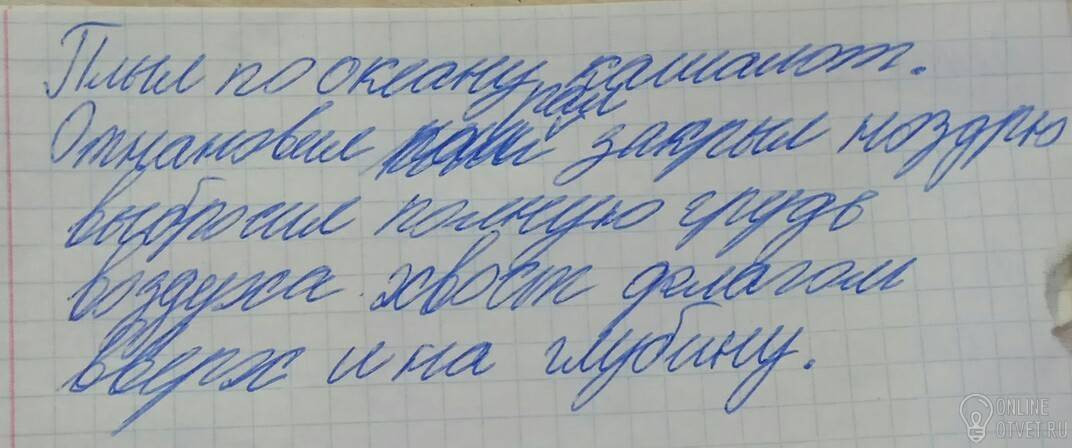 Плыл по океану кашалот.
Остановил закрыл ноздрю
выбросил полную грудь
воздуха. хвост флагом
вверх и на глубину.
ONLINE
OTVET.RU